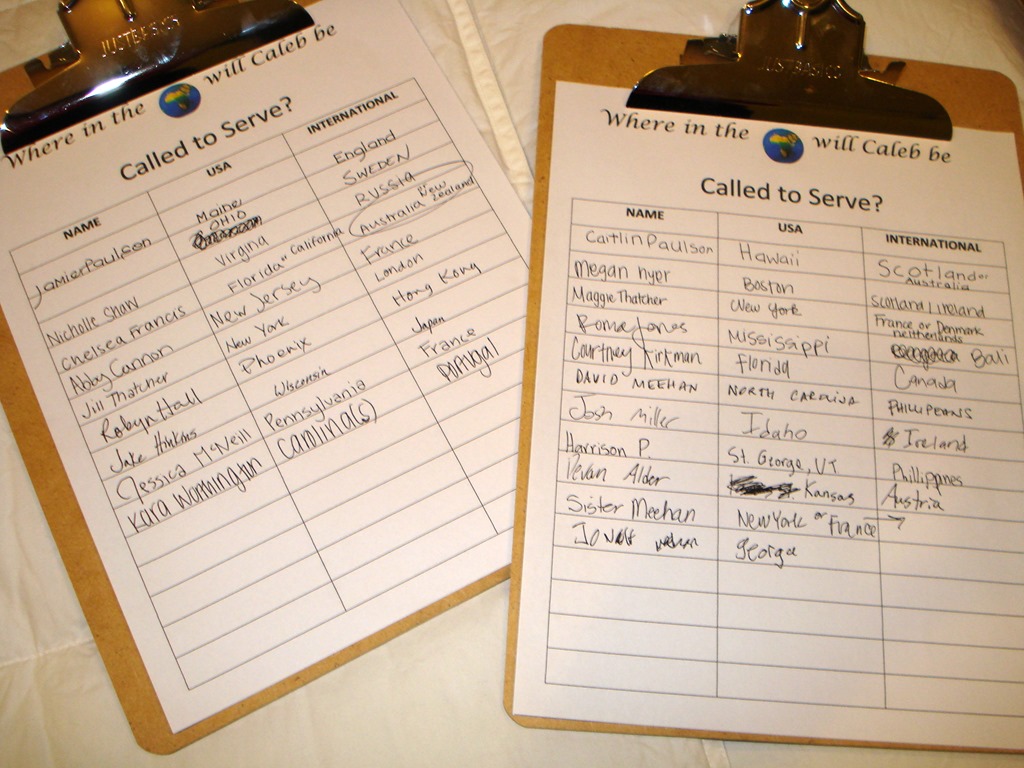 JUSTBASICS
Where in the will Caleb be
Called to Serve?
NAME USA INTERNATIONAL
Jamie Paulson Maine England
OHIO SWEDEN
Nicholle Shaw Virgina RUSSIA
Chelsea Francis Florida " California Australia New Zealand
Abby Cannon New Jersey France
Jill Thatcher New York London
Robyn Hall Phoenix Hong Kong
Jake Hinkins Wisconsin Japan
Jessica McNeill Pennsylvania France
Kara Wormington Calinina(s) portugal
JUSTBASICS
Where in the will Caleb be
Called to Serve?
NAME USA INTERNATIONAL
Caitlin Paulson Hawaii Scotland or Australia
Megan Hyer Boston Scotland / Ireland
Maggie Thatcher New York France or Denmark neitherlands
Roma Jones Mississippi Bali
Courtney Kirkman florida Canada
DAVID MEEHAN NORTH CAROLINA PHILLIPEANS
Josh Miller Idaho Ireland
Harrison P. St. George, UT Phillippines
Devan Alder Kansas Austria
Sister Meehan New York or France
georga